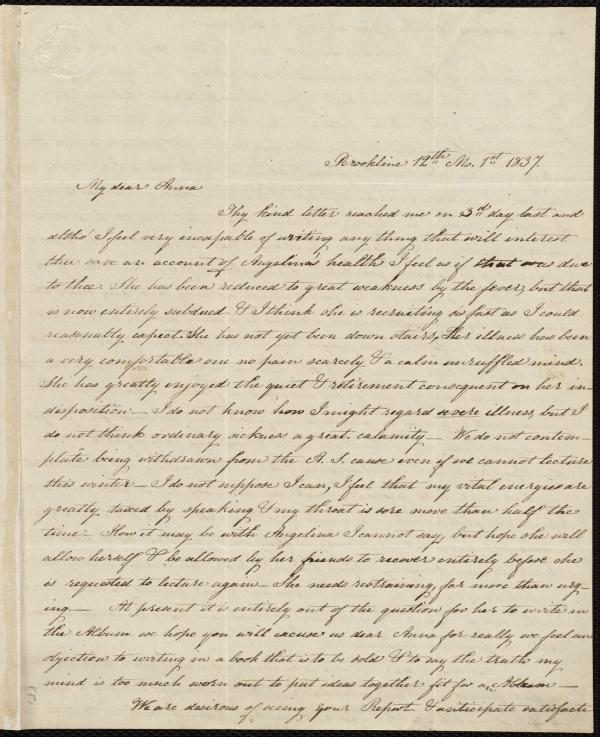 Brookline 12th Mo. 1st 1837.
My dear Anna
Thy kind letter reached me on 3d day last and
altho' I feel very incapable of writing any thing that will interest
thee save an account of Angelina's health I feel as if that was due
to thee. She has been reduced to great weakness by the fever, but that
is now entirely subdued & I think she is recruiting as fast as I could
reasonably expect. She has not yet been down stairs, Her illness has been
a very comfortable one no pain scarcely & a calm unruffled mind.
She has greatly enjoyed the quiet & retirement consequent on her in-
disposition — I do not know how I might regard severe illness, but I
do not think ordinary sickness a great calamity — We do not contem-
plate being withdrawn from the A. S. cause even if we cannot lecture
this winter — I do not suppose I can, I feel that my vital energies are
greatly taxed by speaking & my throat is sore more than half the
time. How it may be with Angelina I cannot say, but hope she will
allow herself & be allowed by her friends to recover entirely before she
is requested to lecture again — She needs restraining far more than urg-
ing — At present it is entirely out of the question for her to write in
the Album we hope you will excuse us dear Anna for really we feel an
objection to writing in a book that is to be sold & to say the truth my
mind is too much worn out to put ideas together fit for an Album —
We are desirous of seeing your Report & anticipate satisfacti